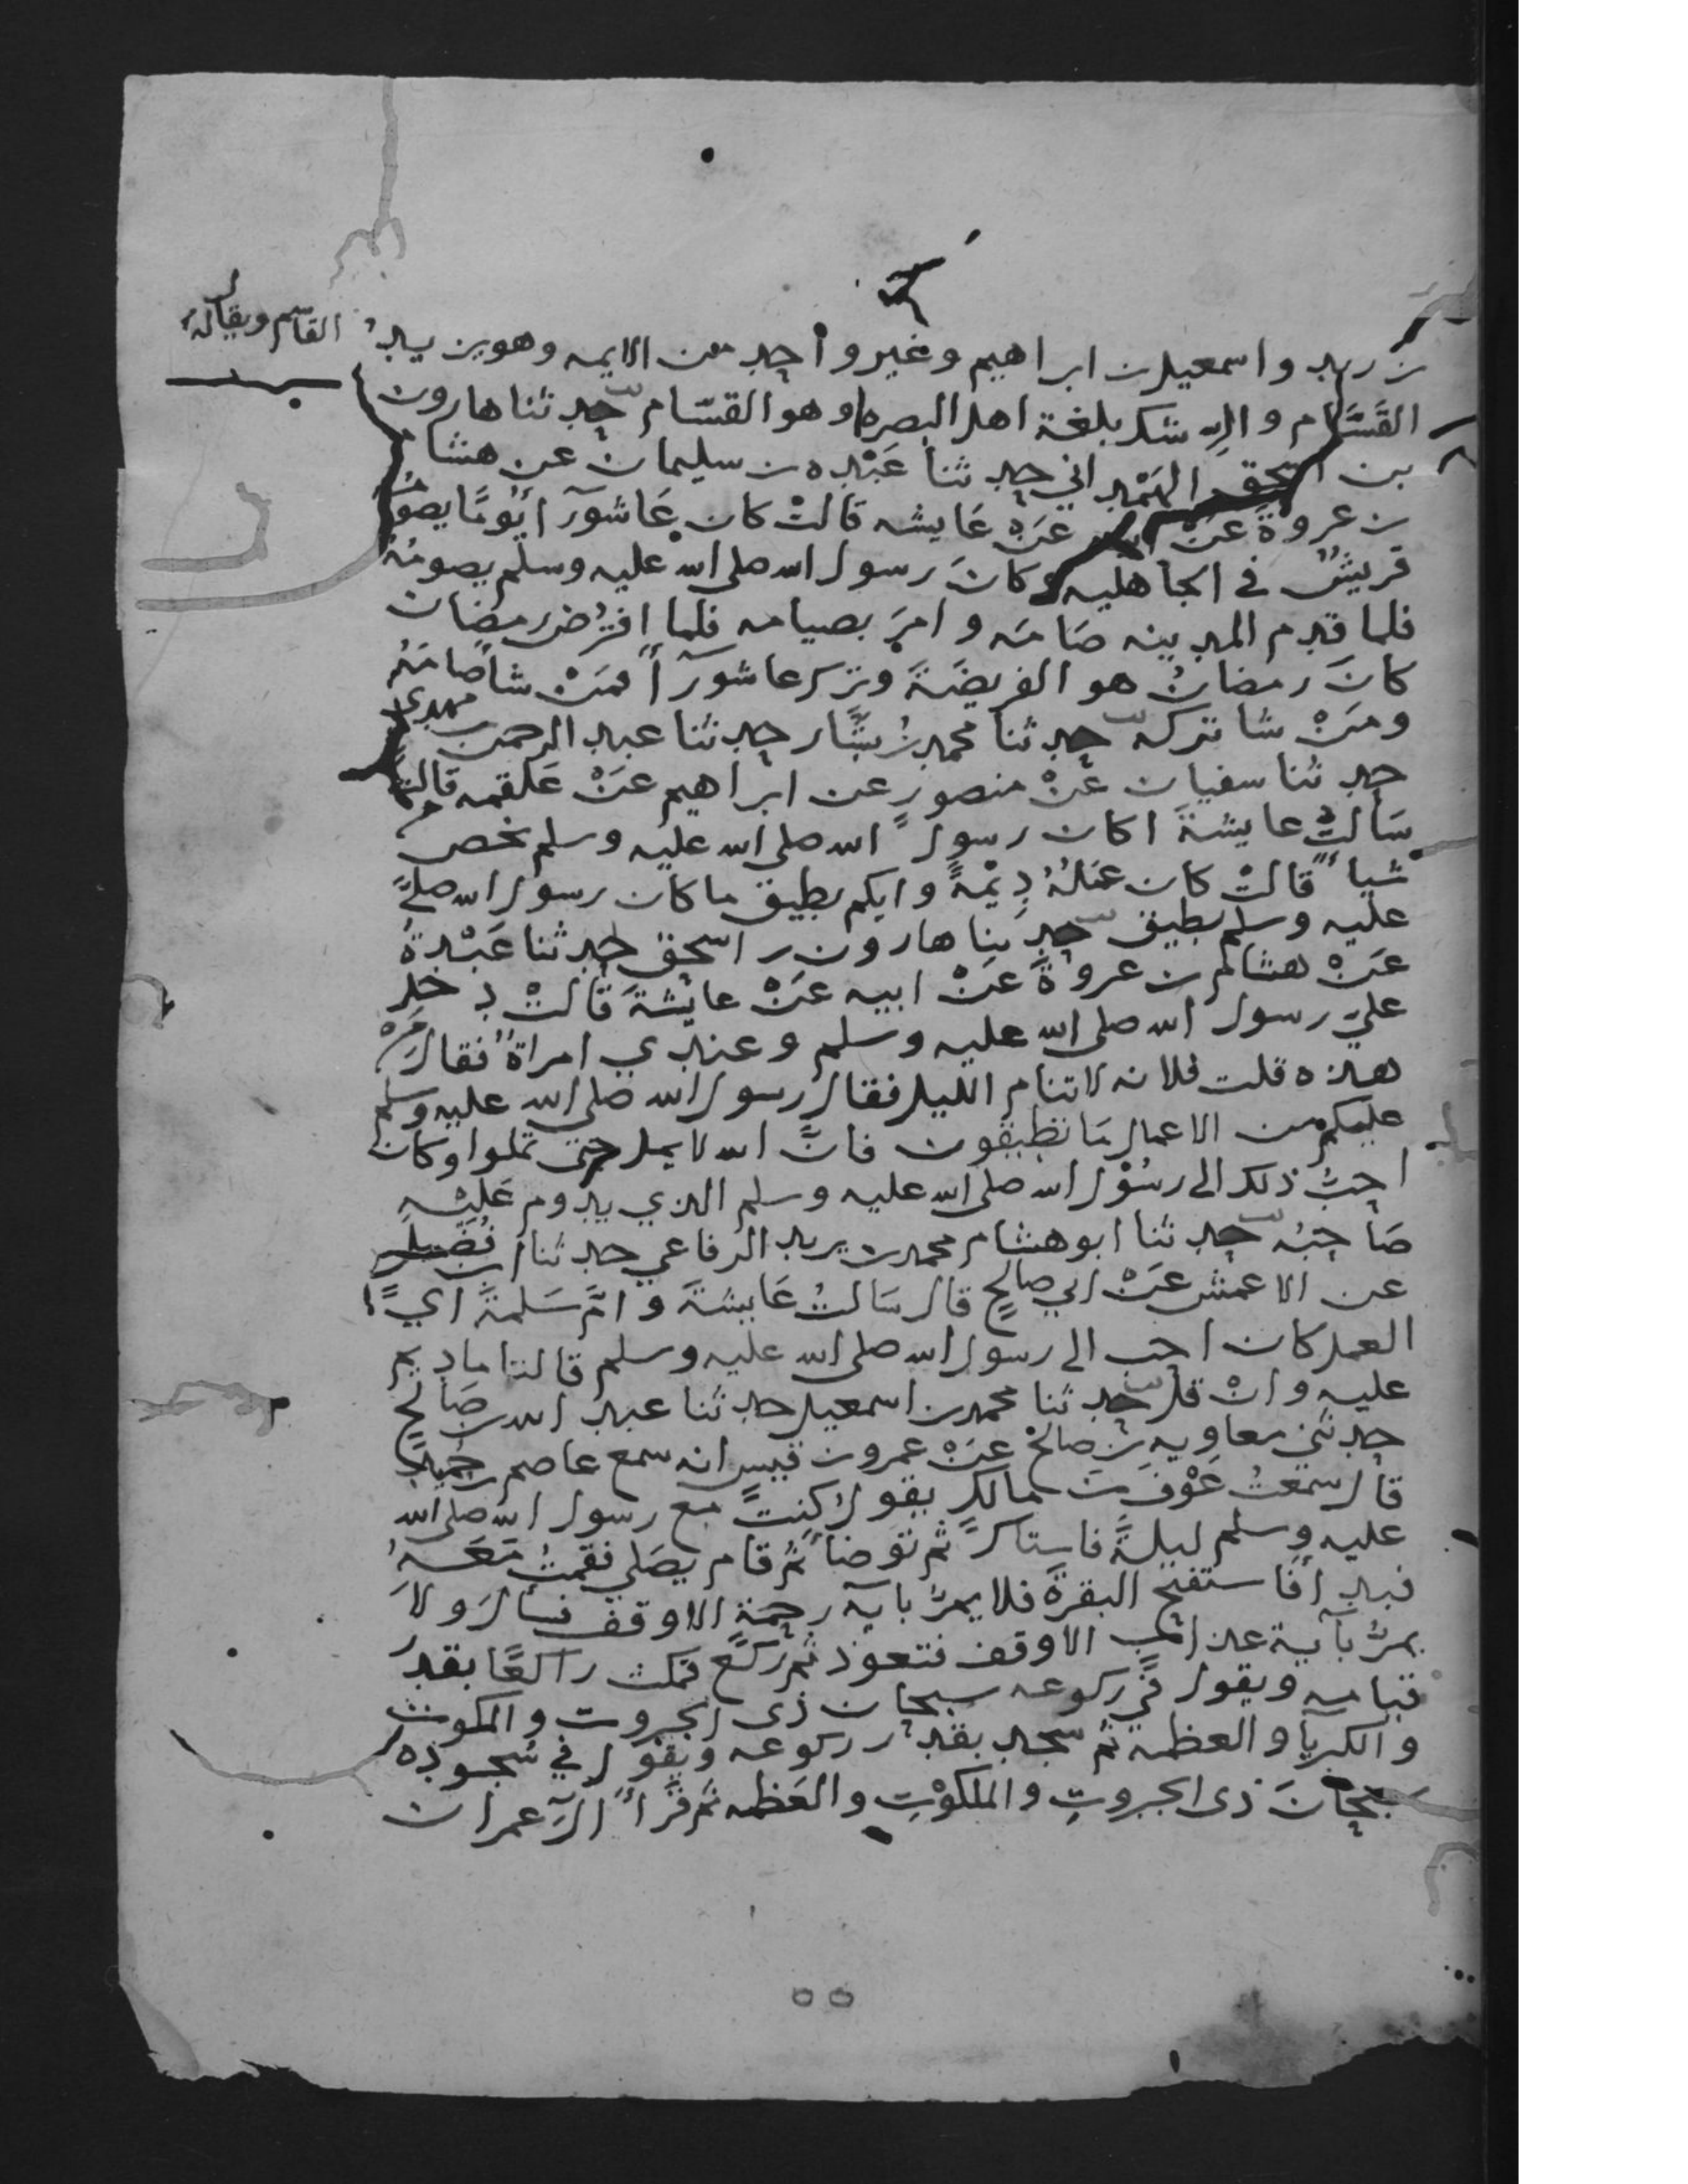 بن زيد واسمعيل بن ابراهيم وغير واحد من الايمه وهو يزيد
القاسم ويقال
القَسَّام والرشك بلغة اهل البصره هو القسّام حدثنا هارون
بن اسحق الهَمْداني حدثنا عَبْده بن سليمان عن هشام
بن عروة عَنْ ابيه عَنْ عَايشه قالتْ كان عَاشورآ يَومًا يصومُهُ
قريشٌ في الجاهليه وكانَ رسول الله صلى الله عليه وسلم يصومُهُ
فلما قدم المدينه صَامَه وامرَ بصيامه فلما افترُض رمضان
كانَ رمضانُ هو الفريضَةَ وتُرك عاشورآ فمَنْ شا صامَهُ
ومَنْ شا تركه حدثنا محمد بنُ بشَّار حدثنا عبد الرحمن بن مهدي
حدثنا سفيان عَنْ منصورٍ عن ابراهيم عَنْ عَلقمه قال
سَالتُ عايشةَ اكان رسول الله صلى الله عليه وسلم يخص
شياً قالتْ كان عَمَلُهُ دِيْمَةً وايكم يطيق ما كان رسول الله صلى
عليه وسلم يطيق حدثنا هارون بن اسحق حدثنا عَبْدةُ
عَنْ هشام بن عروةَ عَنْ ابيه عَنْ عايشةَ قالتْ دخل
عليَّ رسول الله صلى الله عليه وسلم وعندي امراةٌ فقال مَنْ
هذه قلت فلانه لا تنام الليل فقال رسول الله صلى الله عليه وسلم
عليكم من الاعمال مَا تطيقون فانَّ الله لا يمل حتى تملوا وكان
احبُّ ذلك الى رسُوْل الله صلى الله عليه وسلم الذي يدوم عَليْه
صَاحبُه حدثنا ابو هشام محمد بن يزيد الرفاعي حدثنا ابن فُضَيل
عن الاعمش عَنْ ابي صالحٍ قال سَالتُ عَايشةَ وامَّ سَلمةَ ايُّ
العمل كان احب الى رسول الله صلى الله عليه وسلم قالتا ما ديم
عليه وانْ قل حدثنا محمد بن اسمعيل حدثنا عبد الله بن صَالحٍ
حدثني معاويه بن صالحْ عَنْ عمرو بن قيس انه سمع عاصم بن حُميد
قال سمعتُ عَوْفَ بنَ مالكٍ يقول كنتُ مع رسول الله صلى الله
عليه وسلم ليلةً فاستاك ثم توضأ ثم قام يصَلي فقمتُ مَعَهُ
فبدأ فاستفتح البقرة فلا يمرُّ بايه رحمة الا وقف فسأل ولا
يمرُّ بآية عذاب الا وقف فتعوذ ثم ركع فمكث راكعًا بقدر
قيامه ويقول في ركوعه سبحان ذى الجبروت والملكوت
والكبريآ والعظمه ثم سجد بقدر ركوعه ويقول في سُجوده
سبحَانَ ذى الجبروتِ والملكوْتِ والعَظمه ثم قرأ آل عمران